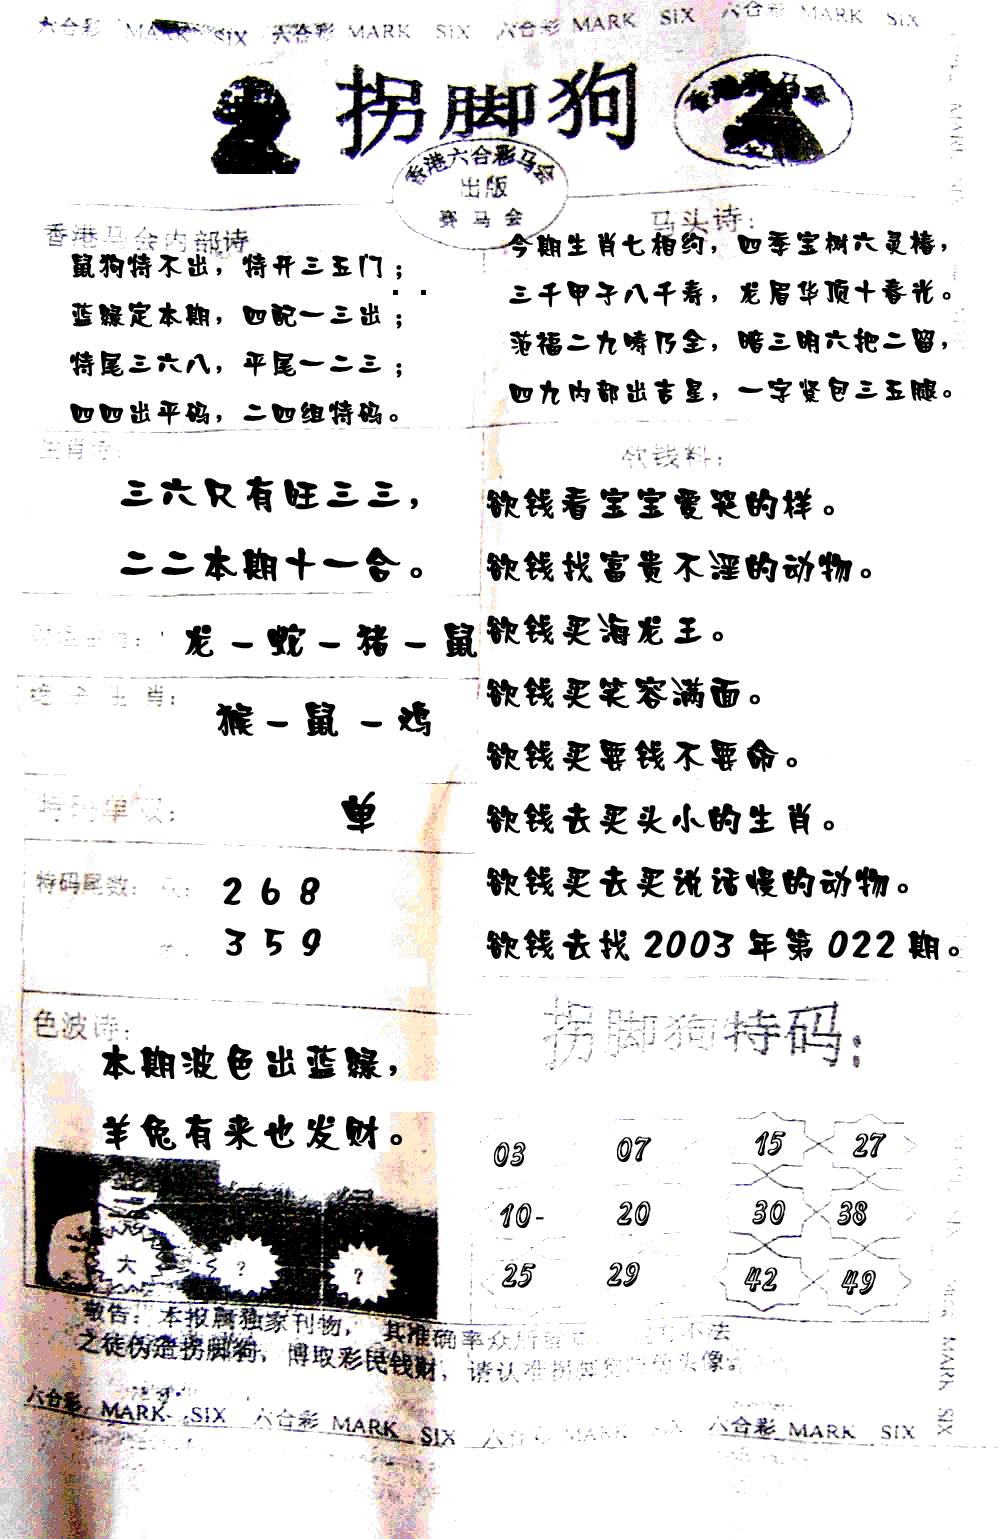 六合彩 MARK SIX 六合彩 MARK SIX 六合彩 MARK SIX 六合彩 MARK SIX
拐脚狗
香港六合彩马会
出版
赛马会
香港马会内部诗
鼠狗特不出，特开三五门；
蓝绿定本期，四配一三出；
特尾三六八，平尾一二三；
四四出平码，二四组特码。
马头诗：
今期生肖七相约，四季宝树六灵椿，
三千甲子八千寿，龙眉华顶十春光。
范福二九畴乃全，暗三明六把二留，
四九内部出吉星，一字紧包三五腿。
生肖诗：
三六只有旺三三，
二二本期十一合。
龙－蛇－猪－鼠
生肖：
猴－鼠－鸡
特码单双：
单
特码尾数：
2 6 8
3 5 9
色波诗：
本期波色出蓝绿，
羊兔有来也发财。
大 ? ?
欲钱料：
欲钱看宝宝爱哭的样。
欲钱找富贵不淫的动物。
欲钱买海龙王。
欲钱买笑容满面。
欲钱买要钱不要命。
欲钱去买头小的生肖。
欲钱买去买说话慢的动物。
欲钱去找 2003 年第 022 期。
拐脚狗特码：
03 07 15 27
10- 20 30 38
25 29 42 49
敬告：本报属独家刊物，其准确率众所
之徒伪造拐脚狗，博取彩民钱财，请认准拐脚狗
六合彩 MARK SIX 六合彩 MARK SIX 六合彩 MARK SIX 六合彩 MARK SIX
MARK SIX